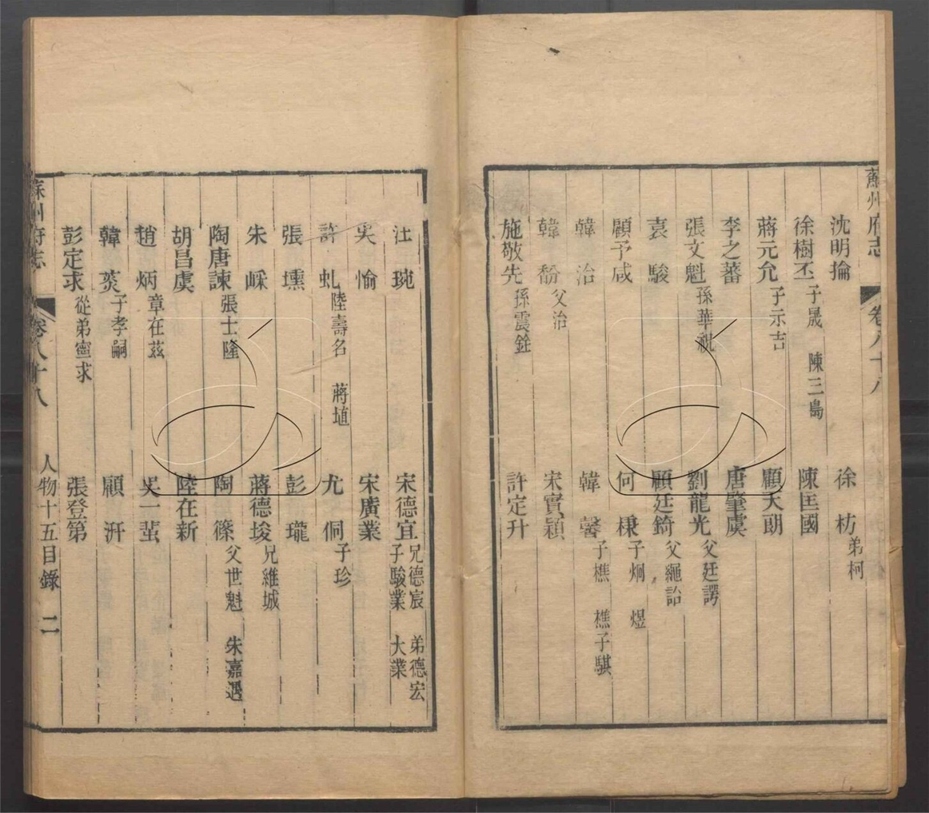 蘇州府志 卷八十八
沈明掄 徐枋 弟柯
徐樹丕 子晟 陳三島 陳匡國
蔣元允 子示吉 顧天朗
李之蕃 唐肇虞
張文魁 孫華祝 劉龍光 父廷諤
袁駿 顧廷錡 父繩詒
顧予咸 何棟 子炯 煜
韓治 韓馨 子樵 樵子騏
韓馚 父治 宋實穎
施敬先 孫震銓 許定升
汪琬 宋德宜 兄德宸 弟德宏 子駿業 大業
吳愉 宋廣業
許虬 陸壽名 蔣埴 尤侗 子珍
張壎 彭瓏
朱嵘 蔣德埈 兄維城
陶唐諫 張士隆 陶篠 父世魁 朱嘉遇
胡昌虞 陸在新
趙炳 章在茲 吳一蜚
韓菼 子孝嗣 顧汧
彭定求 從弟寧求 張登第
蘇州府志 卷八十八 人物十五目錄 二